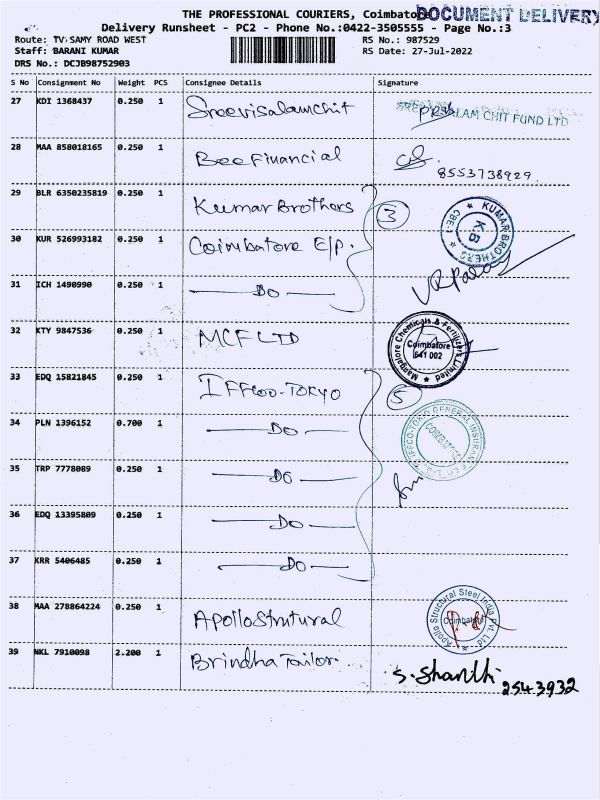 THE PROFESSIONAL COURIERS, Coimbatore
DOCUMENT DELIVERY
Delivery Runsheet - PC2 - Phone No.:0422-3505555 - Page No.:3
Route: TV SAMY ROAD WEST
RS No.: 987529
Staff: BARANI KUMAR
RS Date: 27-Jul-2022
DRS No.: DCJB98752903
S No Consignment No Weight PCS Consignee Details Signature
27 KDI 1368437 0.250 1 Sreevisalamchit CHIT FUND LTD
28 MAA 858018165 0.250 1 Bee Financial 8553738929.
29 BLR 6350235819 0.250 1 Kumar Brothers 3 KUMAR BROTHERS K.B CBE
30 KUR 526993182 0.250 1 Coimbatore E/P.
31 ICH 1490990 0.250 1 Do
32 KTY 9847536 0.250 1 MCF LTD Mangalore Chemicals & Fertilizers Limited Coimbatore 641 002
33 EDQ 15821845 0.250 1 IFFCO-TOKYO 5
34 PLN 1396152 0.700 1 Do IFFCO-TOKIO GENERAL INSURANCE CO. LTD. COIMBATORE
35 TRP 7778089 0.250 1 Do
36 EDQ 13395809 0.250 1 Do
37 KRR 5406485 0.250 1 Do
38 MAA 278864224 0.250 1 Apollo Strutural Apollo Structural Steel India Pvt. Ltd Coimbatore
39 NKL 7910098 2.200 1 Brindha Tailor. S. Shanthi
2543932